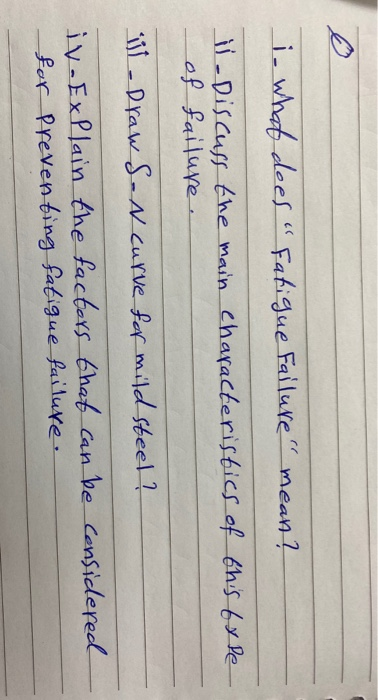 i- what does "Fatigue Failure" mean?
ii- Discuss the main characteristics of this type
of failure.
iii- Draw S-N curve for mild steel?
iv- Explain the factors that can be considered
for preventing fatigue failure.